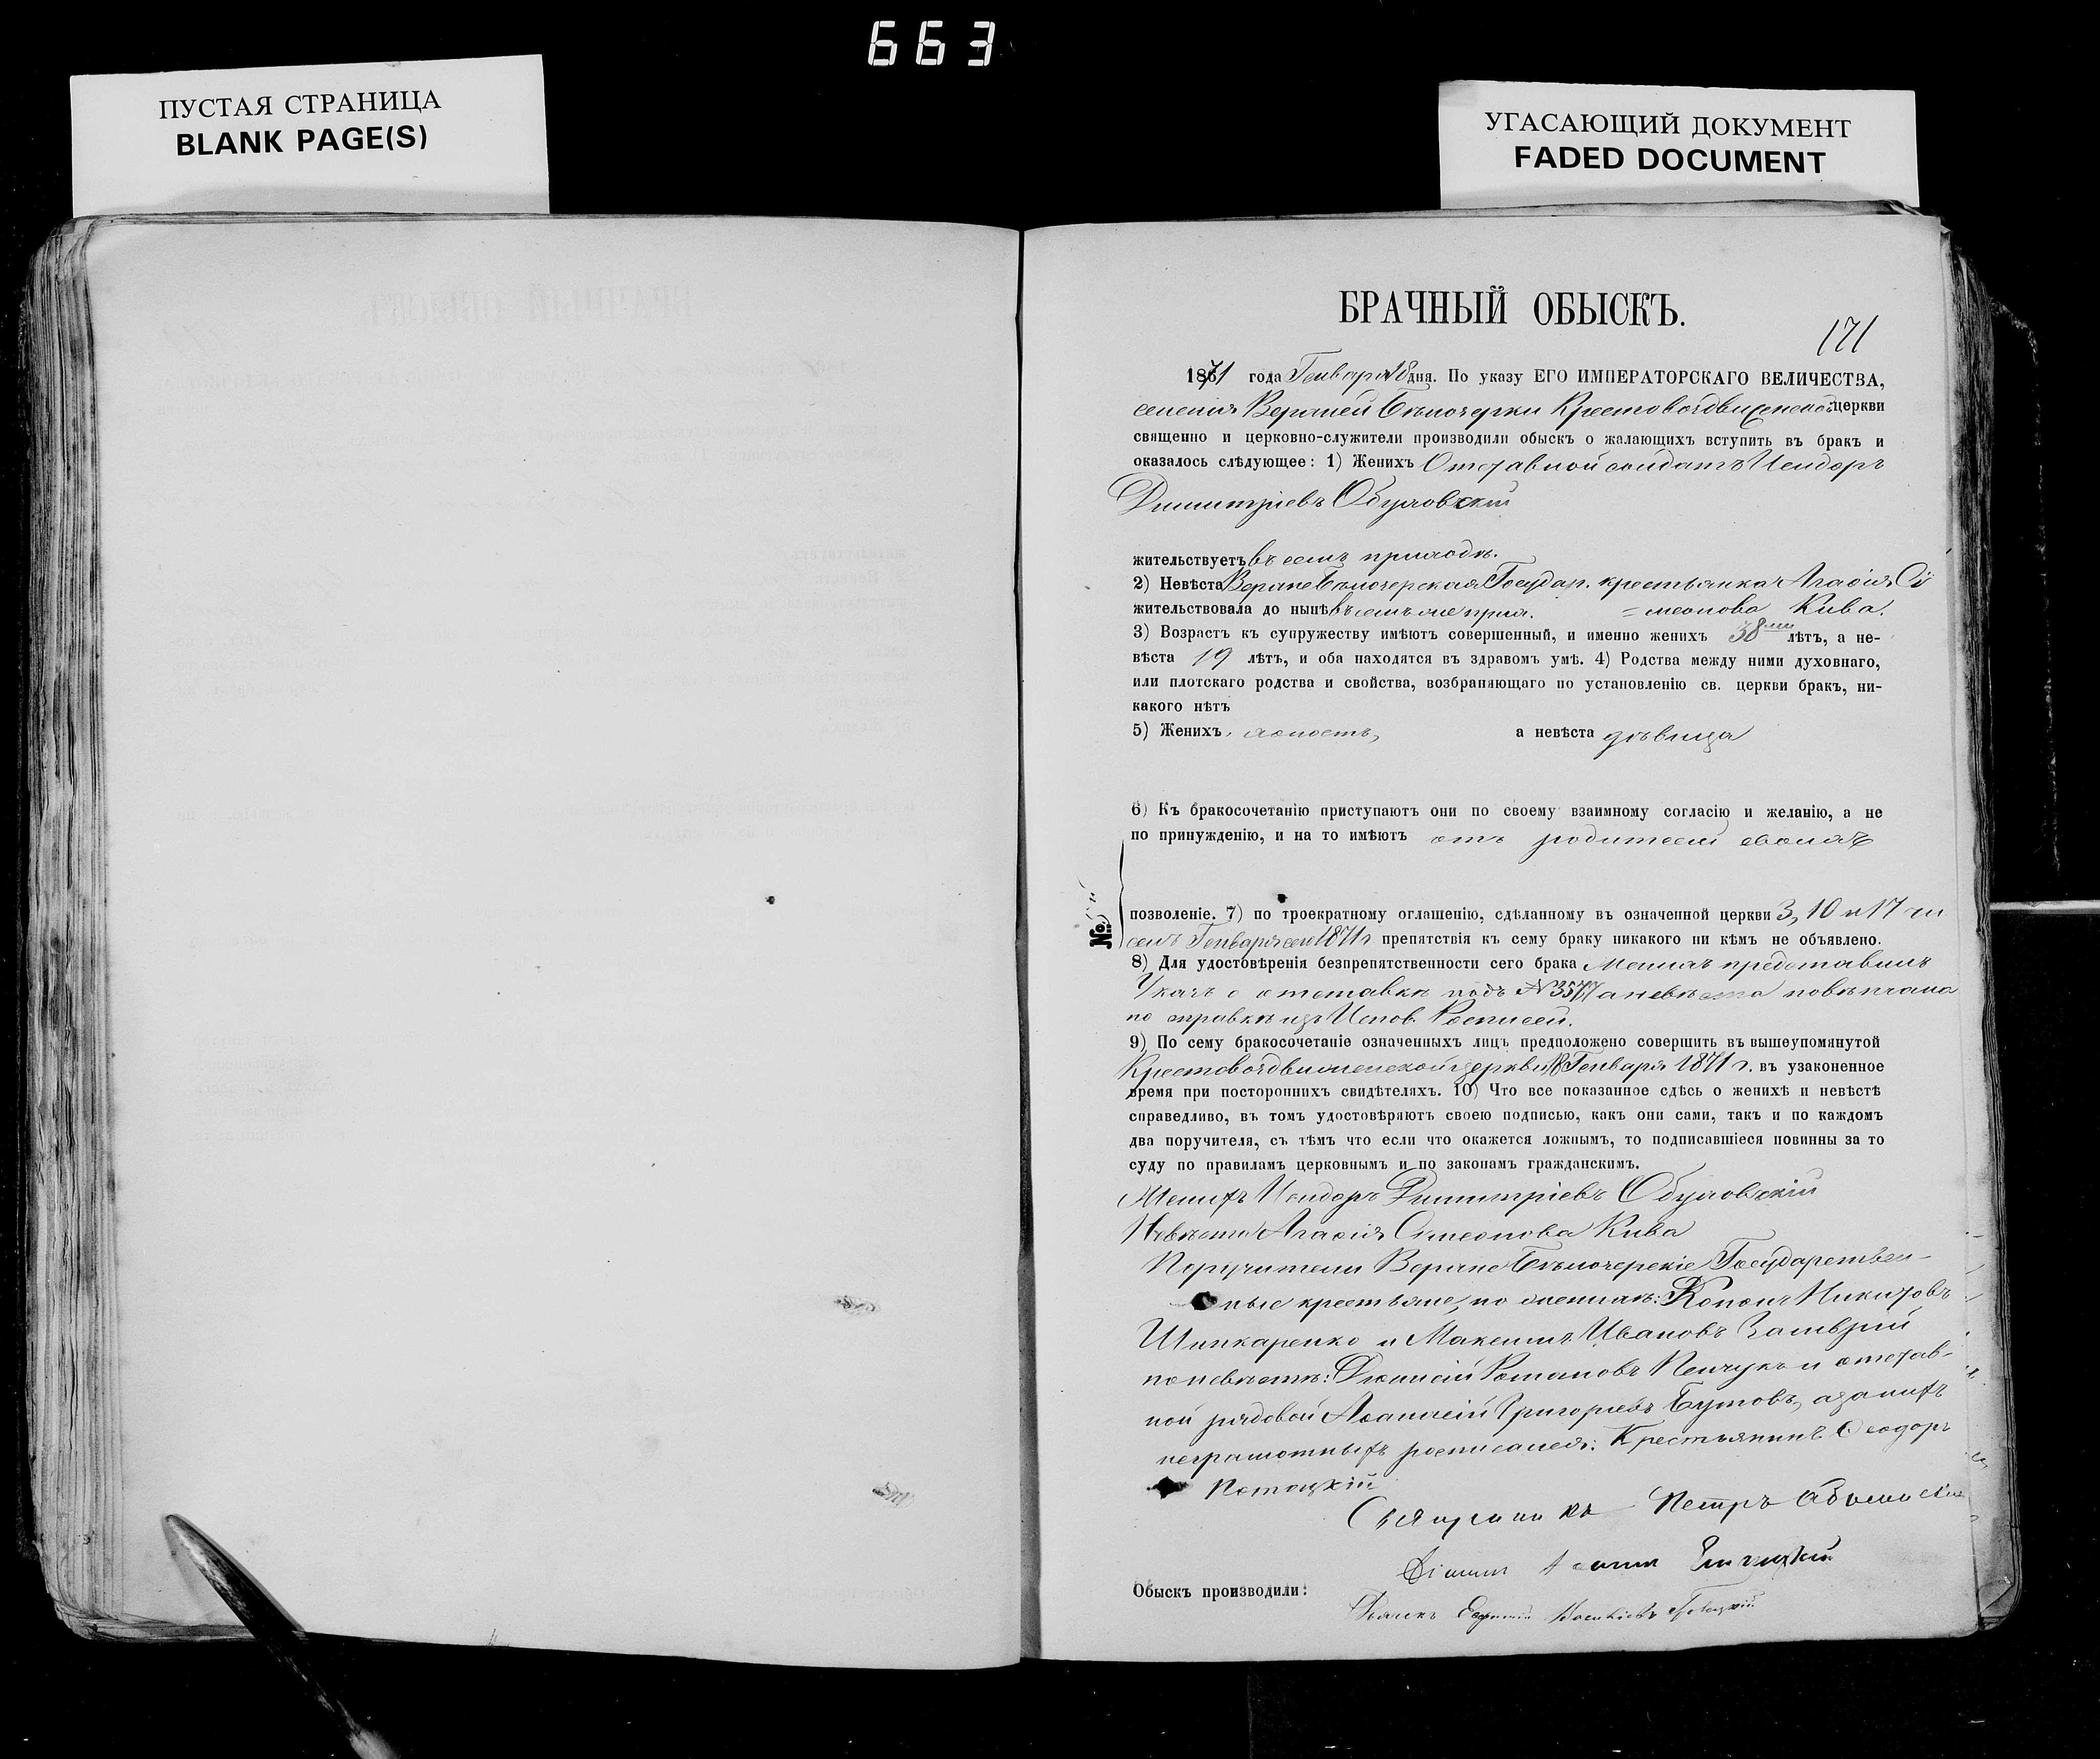 663
ПУСТАЯ СТРАНИЦА
BLANK PAGE(S)
УГАСАЮЩИЙ ДОКУМЕНТ
FADED DOCUMENT
БРАЧНЫЙ ОБЫСКЪ.
171
1871 года Генваря 18 дня. По указу ЕГО ИМПЕРАТОРСКАГО ВЕЛИЧЕСТВА,
селенія Верхней Бѣлозерки Крестовоздвиженской церкви
священно и церковно-служители производили обыскъ о жалающихъ вступить въ бракъ и
оказалось слѣдующее: 1) Женихъ Отставной солдатъ Исидоръ
Димитріевъ Обуховскій
жительствуетъ въ семъ приходѣ.
2) Невѣста Верхне Бѣлозерская Государ. крестьянка Агафія Си
жительствовала до нынѣ въ семъ же прих. = меонова Кива.
3) Возрастъ къ супружеству имѣютъ совершенный, и именно женихъ 38 ми лѣтъ, а не-
вѣста 19 лѣтъ, и оба находятся въ здравомъ умѣ. 4) Родства между ними духовнаго,
или плотскаго родства и свойства, возбраняющаго по установленію св. церкви бракъ, ни-
какого нѣтъ
5) Женихъ холостъ, а невѣста дѣвица
6) Къ бракосочетанію приступаютъ они по своему взаимному согласію и желанію, а не
по принужденію, и на то имѣютъ отъ родителей своихъ
№
позволеніе. 7) по троекратному оглашенію, сдѣланному въ означенной церкви 3, 10 и 17 чи
селъ Генваря сего 1871 г. препятствія къ сему браку никакого ни кѣмъ не объявлено.
8) Для удостовѣренія безпрепятственности сего брака Женихъ представилъ
Указъ о отставкѣ подъ № 3577 а невѣста повѣнчана
по справкѣ изъ Испов. Росписей.
9) По сему бракосочетаніе означенныхъ лицъ предположено совершить въ вышеупомянутой
Крестовоздвиженской церкви 18 Генваря 1871 г. въ узаконенное
время при постороннихъ свидѣтеляхъ. 10) Что все показанное сдѣсь о женихѣ и невѣстѣ
справедливо, въ томъ удостовѣряютъ своею подписью, какъ они сами, такъ и по каждомъ
два поручителя, съ тѣмъ что если что окажется ложнымъ, то подписавшіеся повинны за то
суду по правиламъ церковнымъ и по законамъ гражданскимъ.
Женихъ Исидоръ Димитріевъ Обуховскій
Невѣста Агафія Симеонова Кива
Поручители Верхне Бѣлозерскіе Государствен-
ные крестьяне, по женихѣ: Кононъ Никитовъ
Шинкаренко и Максимъ Ивановъ
по невѣстѣ: Діонисій Романовъ и отстав-
ной рядовой Афанасій Григорьевъ Бутовъ, а за нихъ
неграмотныхъ росписался: Крестьянинъ Феодоръ
Потоцкій
Священникъ Петръ
Обыскъ производили: